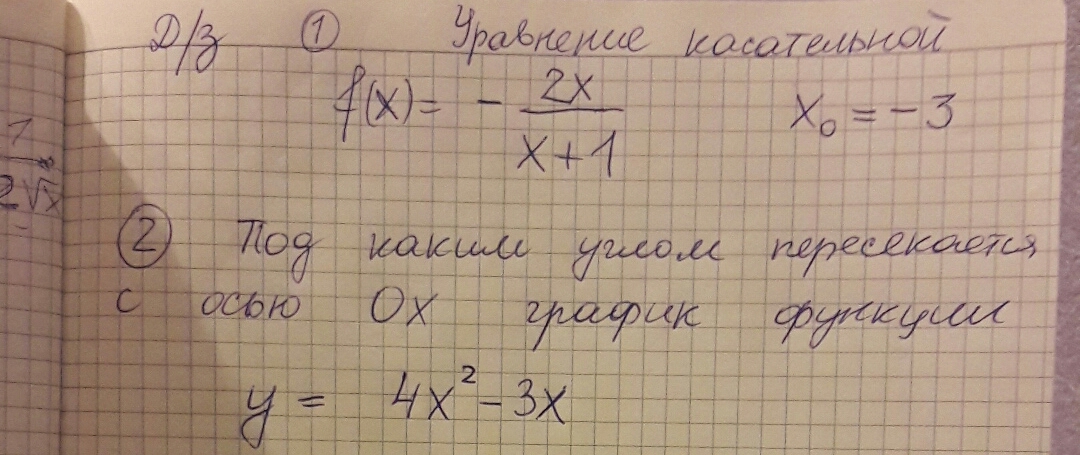 Д/з ① Уравнение касательной
f(x) = - 2x / x + 1 x₀ = -3
1
2√x
② Под каким углом пересекается
с осью OX график функции
y = 4x² - 3x